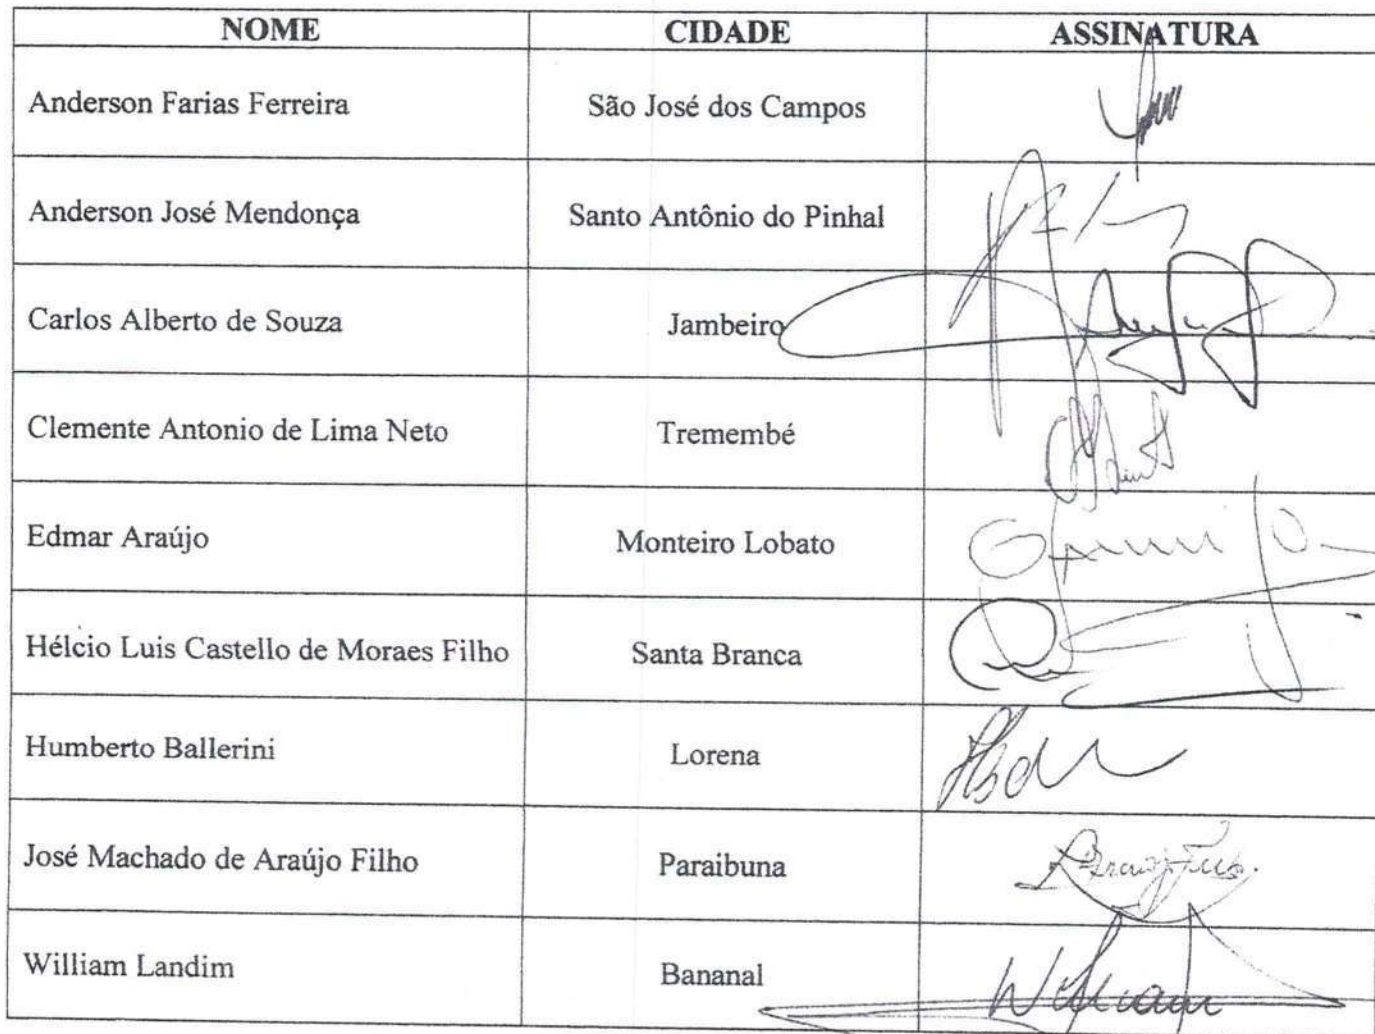 NOME CIDADE ASSINATURA
Anderson Farias Ferreira São José dos Campos
Anderson José Mendonça Santo Antônio do Pinhal
Carlos Alberto de Souza Jambeiro
Clemente Antonio de Lima Neto Tremembé
Edmar Araújo Monteiro Lobato
Hélcio Luis Castello de Moraes Filho Santa Branca
Humberto Ballerini Lorena
José Machado de Araújo Filho Paraibuna
William Landim Bananal William